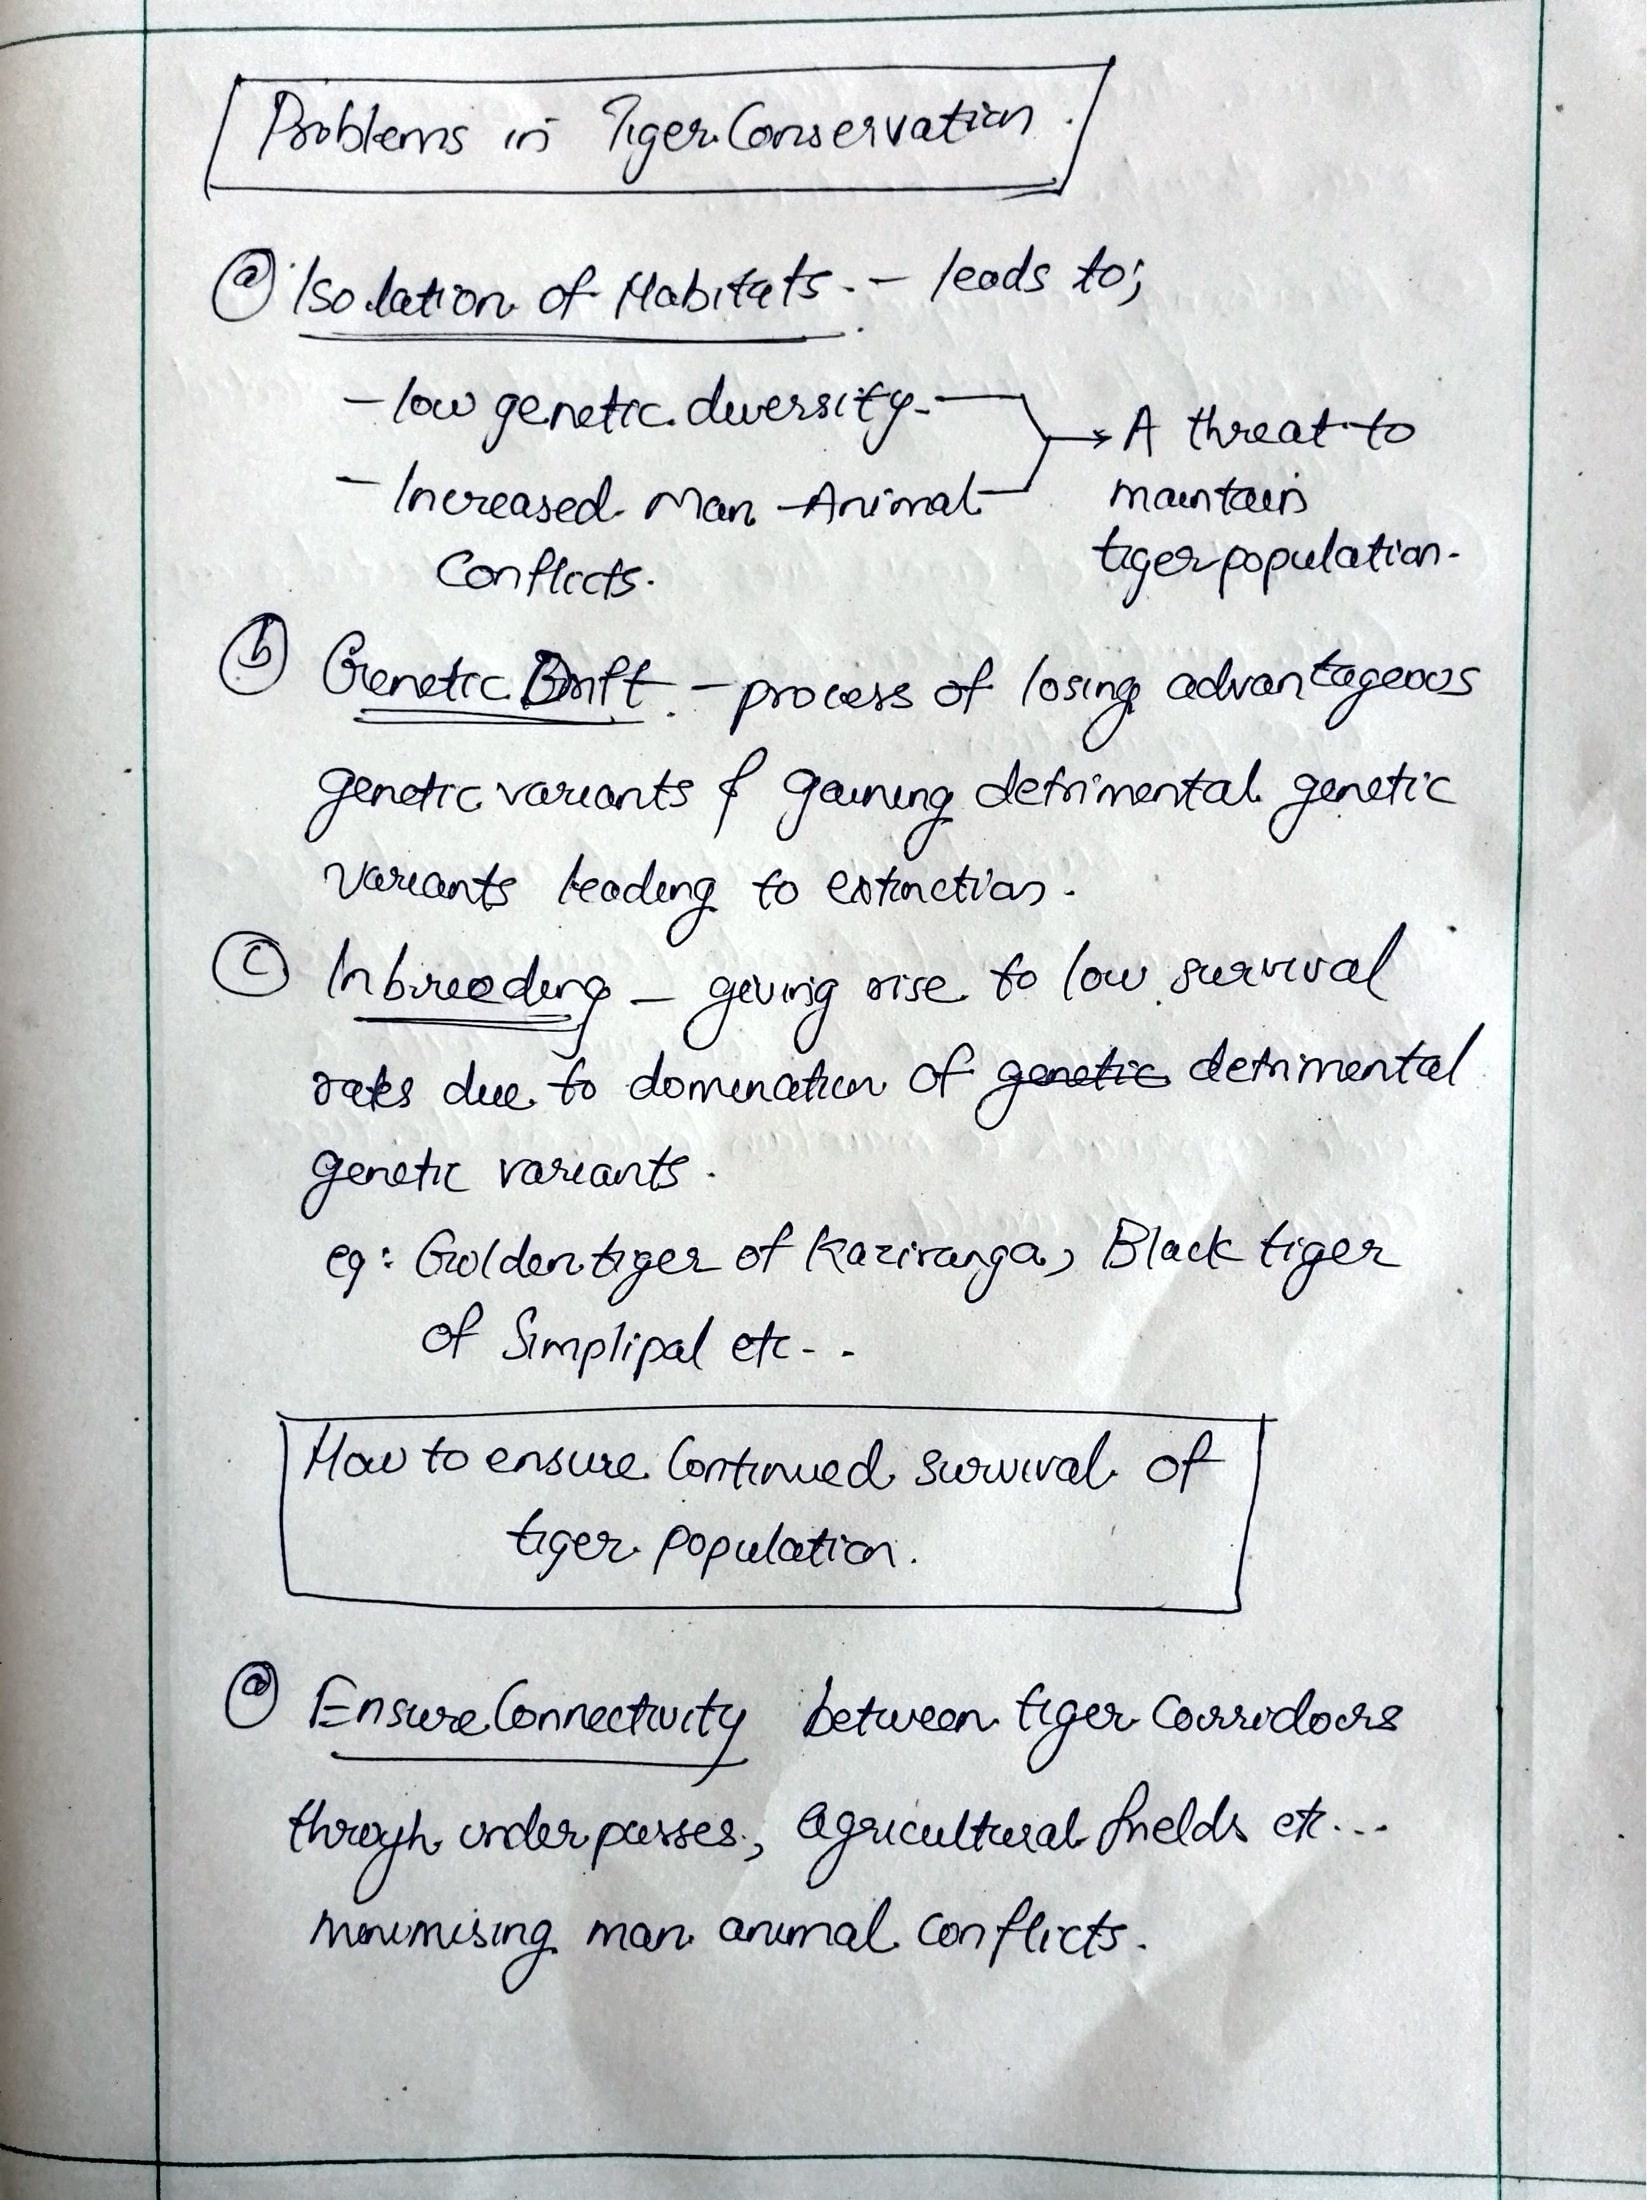 Problems in Tiger Conservation.
(a) Isolation of Habitats. - leads to;
- low genetic diversity - → A threat to
- Increased Man - Animal maintain
Conflicts. tiger population.
(b) Genetic Drift. - process of losing advantageous
genetic variants & gaining detrimental genetic
variants leading to extinction.
(c) Inbreeding - giving rise to low survival
rates due to domination of genetic detrimental
genetic variants.
eg: Golden tiger of Kaziranga, Black tiger
of Simplipal etc--
How to ensure Continued survival of
tiger population.
(a) Ensure Connectivity between tiger Corridors
through underpasses, agricultural fields etc...
minimising man animal conflicts.